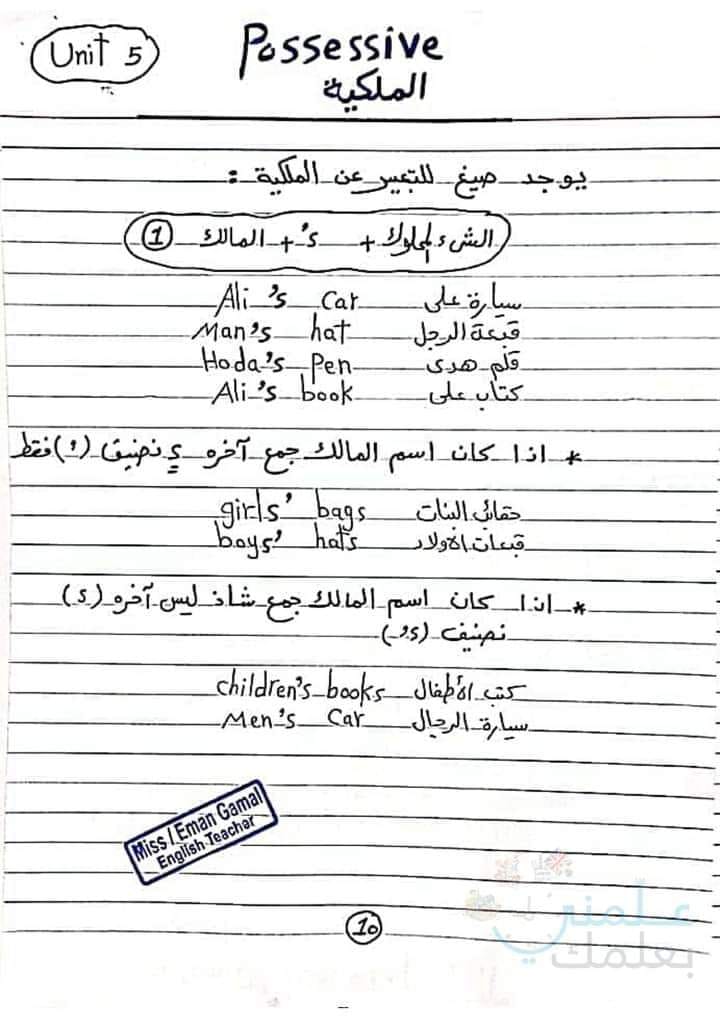 Unit 5
Possessive
الملكية
يوجد صيغ للتعبير عن الملكية :
1 المالك + 's + الشئ المملوك
Ali's car سيارة على
Man's hat قبعة الرجل
Hoda's pen قلم هدى
Ali's book كتاب على
* اذا كان اسم المالك جمع آخره s نضيف (') فقط
girls' bags حقائب البنات
boys' hats قبعات الأولاد
* اذا كان اسم المالك جمع شاذ ليس آخره (s)
نضيف ('s)
children's books كتب الأطفال
Men's car سيارة الرجال
Miss / Eman Gamal
English Teacher
علمني
بعلمك
10